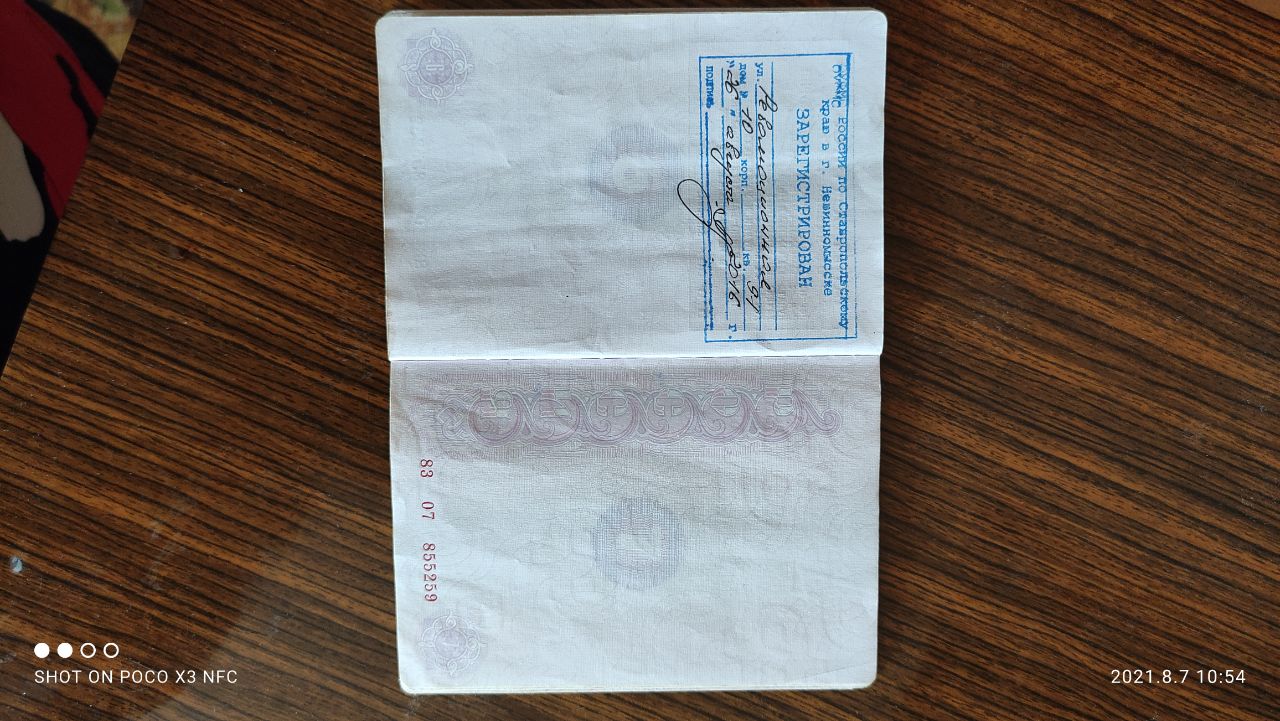 ОУФМС РОССИИ ПО Ставропольскому
краю в г. Невинномысске
ЗАРЕГИСТРИРОВАН
ул. Революционная
дом № 10 корп. кв. 91
"26" августа 2016 г.
подпись
83 07 855259
SHOT ON POCO X3 NFC
2021.8.7 10:54